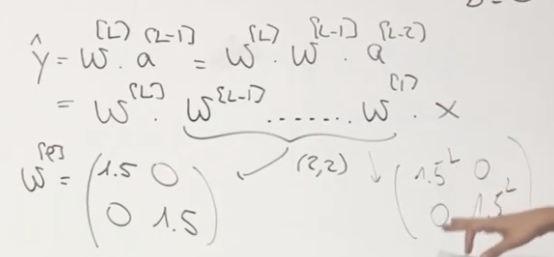 ŷ = W^[L] . a^[L-1] = W^[L] . W^[L-1] . a^[L-2]
= W^[L] . W^[L-1] ....... W^[1] . x
W^[l] = (1.5 0 (2,2) (1.5^L 0
0 1.5) 0 1.5^L)